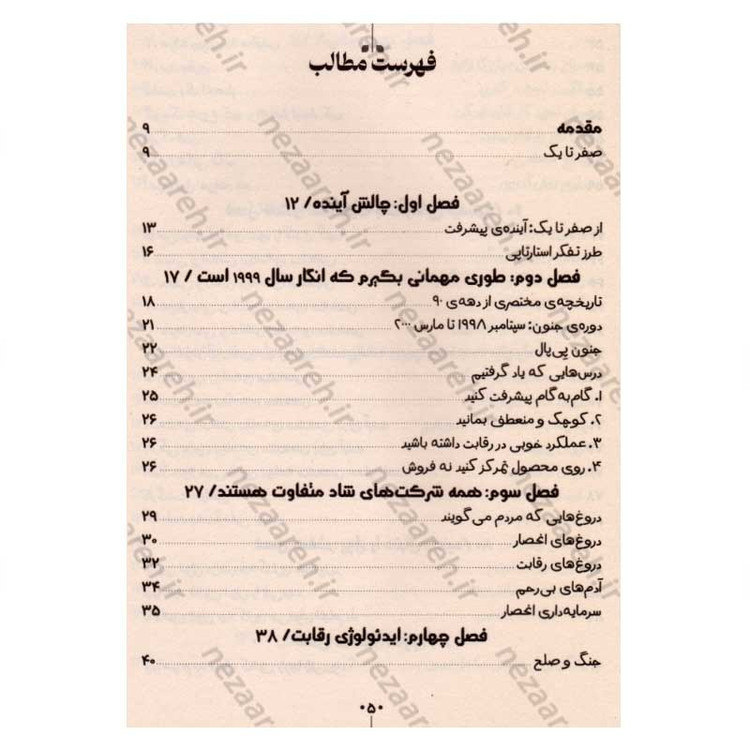 فهرست مطالب
مقدمه ۹
صفر تا یک ۹
فصل اول: چالش آینده/ ۱۲
از صفر تا یک: آینده‌ی پیشرفت ۱۳
طرز تفکر استارتاپی ۱۶
فصل دوم: طوری مهمانی بگیرم که انگار سال ۱۹۹۹ است / ۱۷
تاریخچه‌ی مختصری از دهه‌ی ۹۰ ۱۸
دوره‌ی جنون: سپتامبر ۱۹۹۸ تا مارس ۲۰۰۰ ۲۱
جنون پی‌پال ۲۲
درس‌هایی که یاد گرفتیم ۲۴
۱. گام‌به‌گام پیشرفت کنید ۲۵
۲. کوچک و منعطق بمانید ۲۶
۳. عملکرد خوبی در رقابت داشته باشید ۲۶
۴. روی محصول تمرکز کنید نه فروش ۲۶
فصل سوم: همه شرکت‌های شاد متفاوت هستند/ ۲۷
دروغ‌هایی که مردم می‌گویند ۲۹
دروغ‌های انحصار ۳۰
دروغ‌های رقابت ۳۲
آدم‌های بی‌رحم ۳۴
سرمایه‌داری انحصار ۳۵
فصل چهارم: ایدئولوژی رقابت/ ۳۸
جنگ و صلح ۴۰
۰۵۰
nezaareh.ir